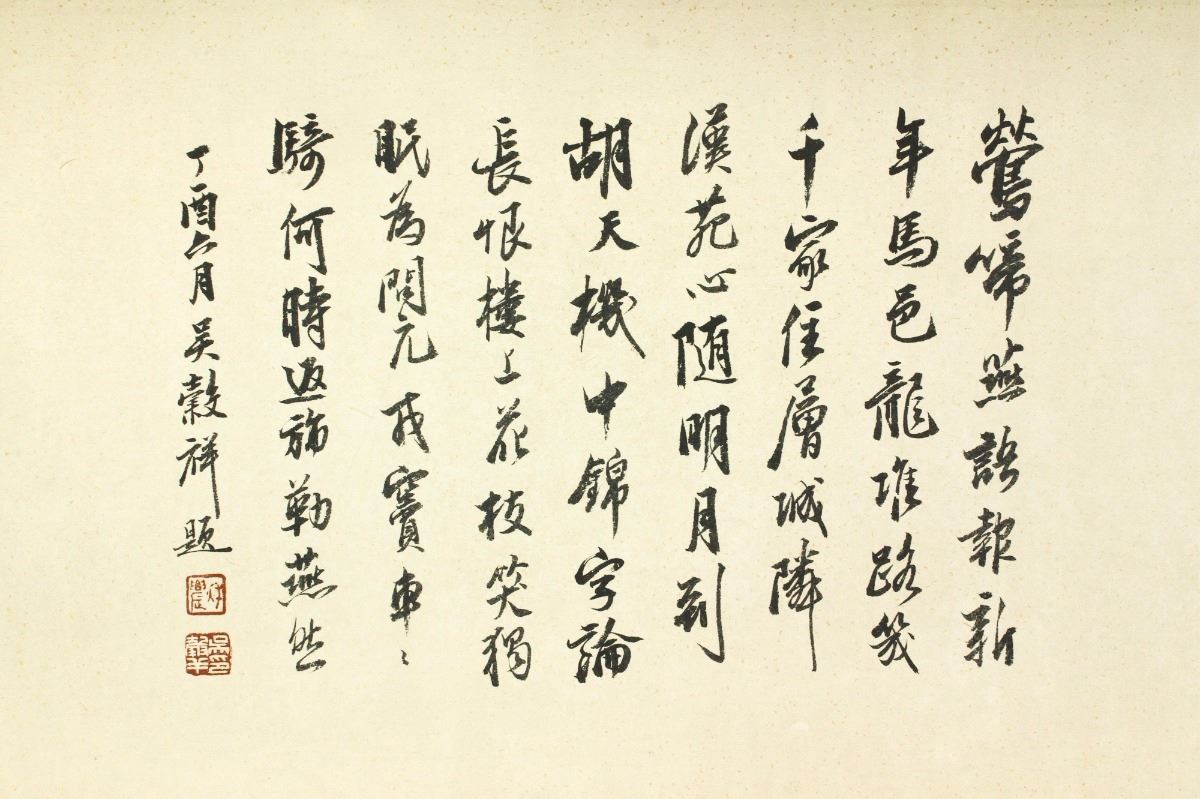 鶯啼燕語報新
年馬邑龍堆路幾
千家住層城隣
漢苑心随明月到
胡天機中錦字論
長恨樓上花枝笑獨
眠為問元戎竇車〻
騎何時返旆勒燕然
丁酉六月吳穀祥題
秋農
吳印穀祥